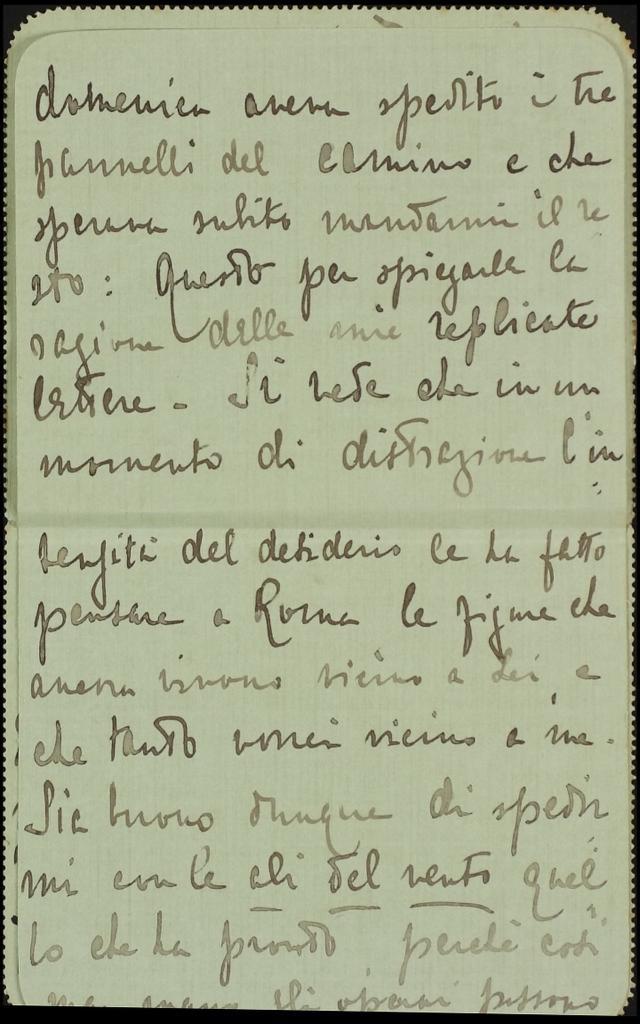 domenica aveva spedito i tre
pannelli del camino e che
sperava subito mandarmi il re
sto: Questo per spiegarle la
ragione delle mie replicate
lettere - Si vede che in un
momento di distrazione l'in=
tensità del desiderio le ha fatto
pensare a Roma le figure che
ancora vivono vicino a Lei, e
che tanto vorrei vicino a me.
Sia buono dunque di spedir=
mi con le ali del vento quel=
lo che ha pronto perchè così
man mano gli operai possono